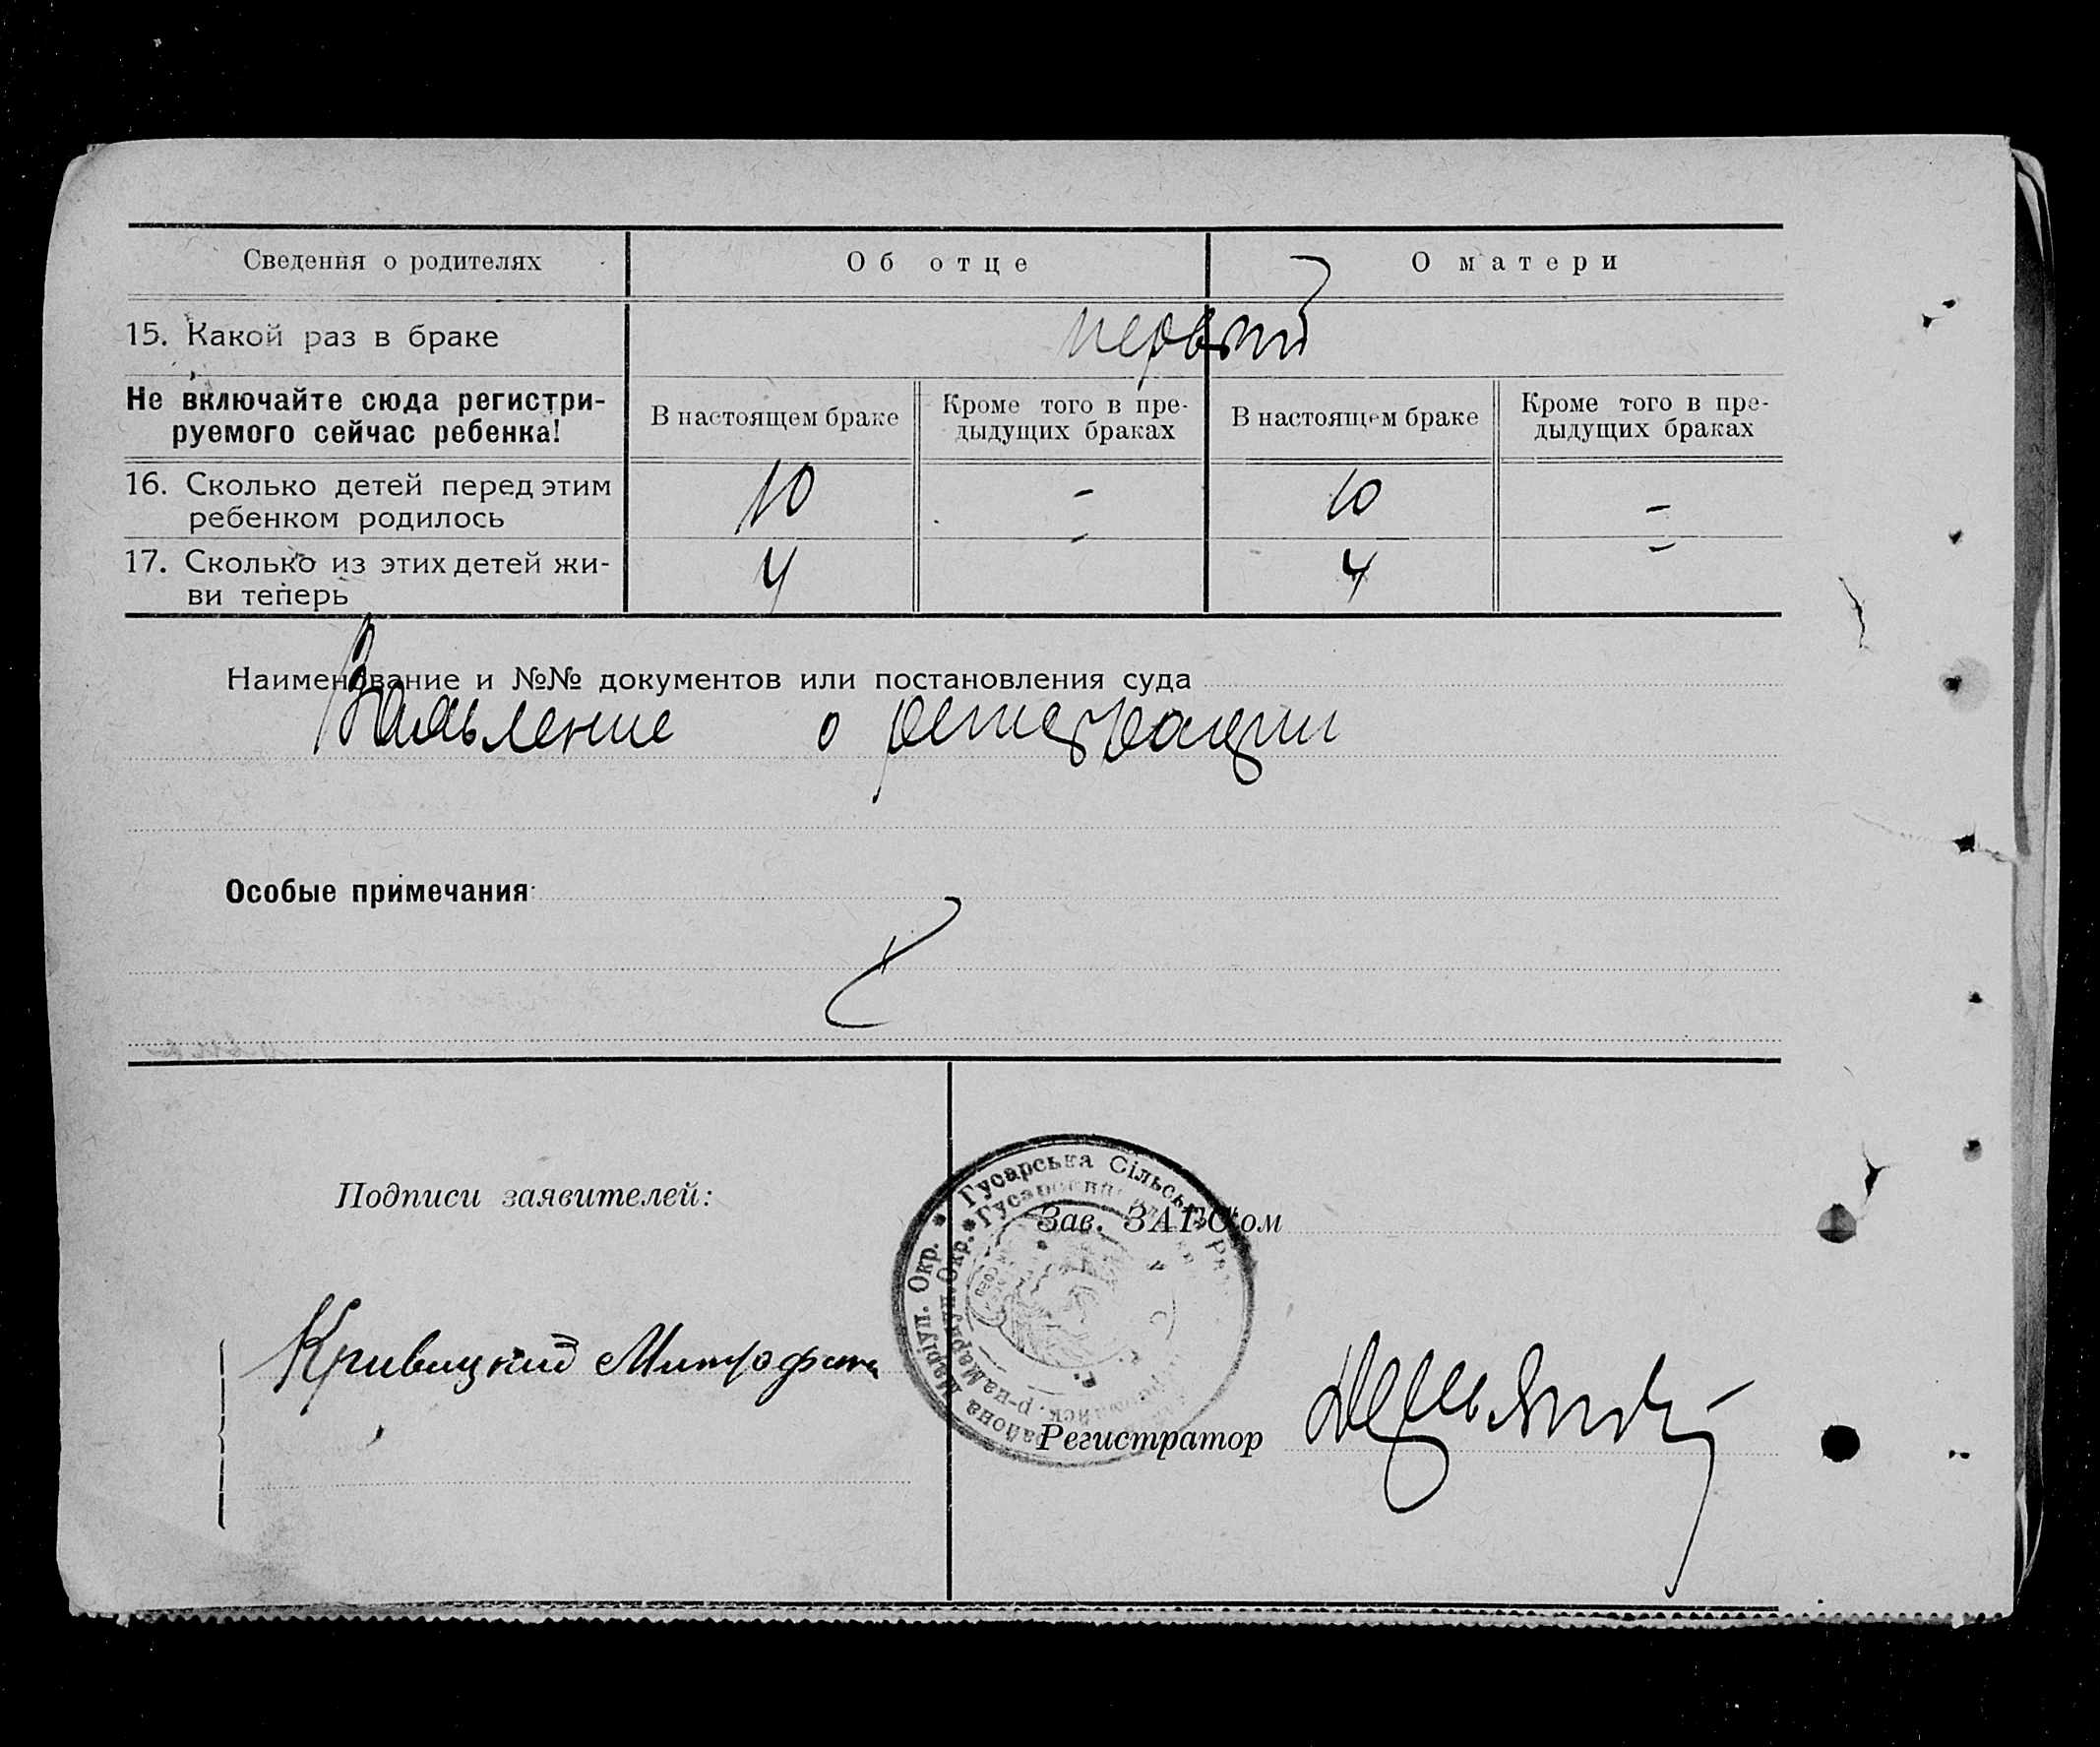 Сведения о родителях
Об отце
О матери
15. Какой раз в браке
первый
Не включайте сюда регистри-
руемого сейчас ребенка!
В настоящем браке
Кроме того в пре-
дыдущих браках
В настоящем браке
Кроме того в пре-
дыдущих браках
16. Сколько детей перед этим
ребенком родилось
10
-
10
-
17. Сколько из этих детей жи-
ви теперь
4
-
4
-
Наименование и №№ документов или постановления суда
Заявление о
Особые примечания
Подписи заявителей:
Гусарська Сільська
Маріуп. Окр.
района
Зав. ЗАГС'ом
Кривицкий Митрофан
Регистратор